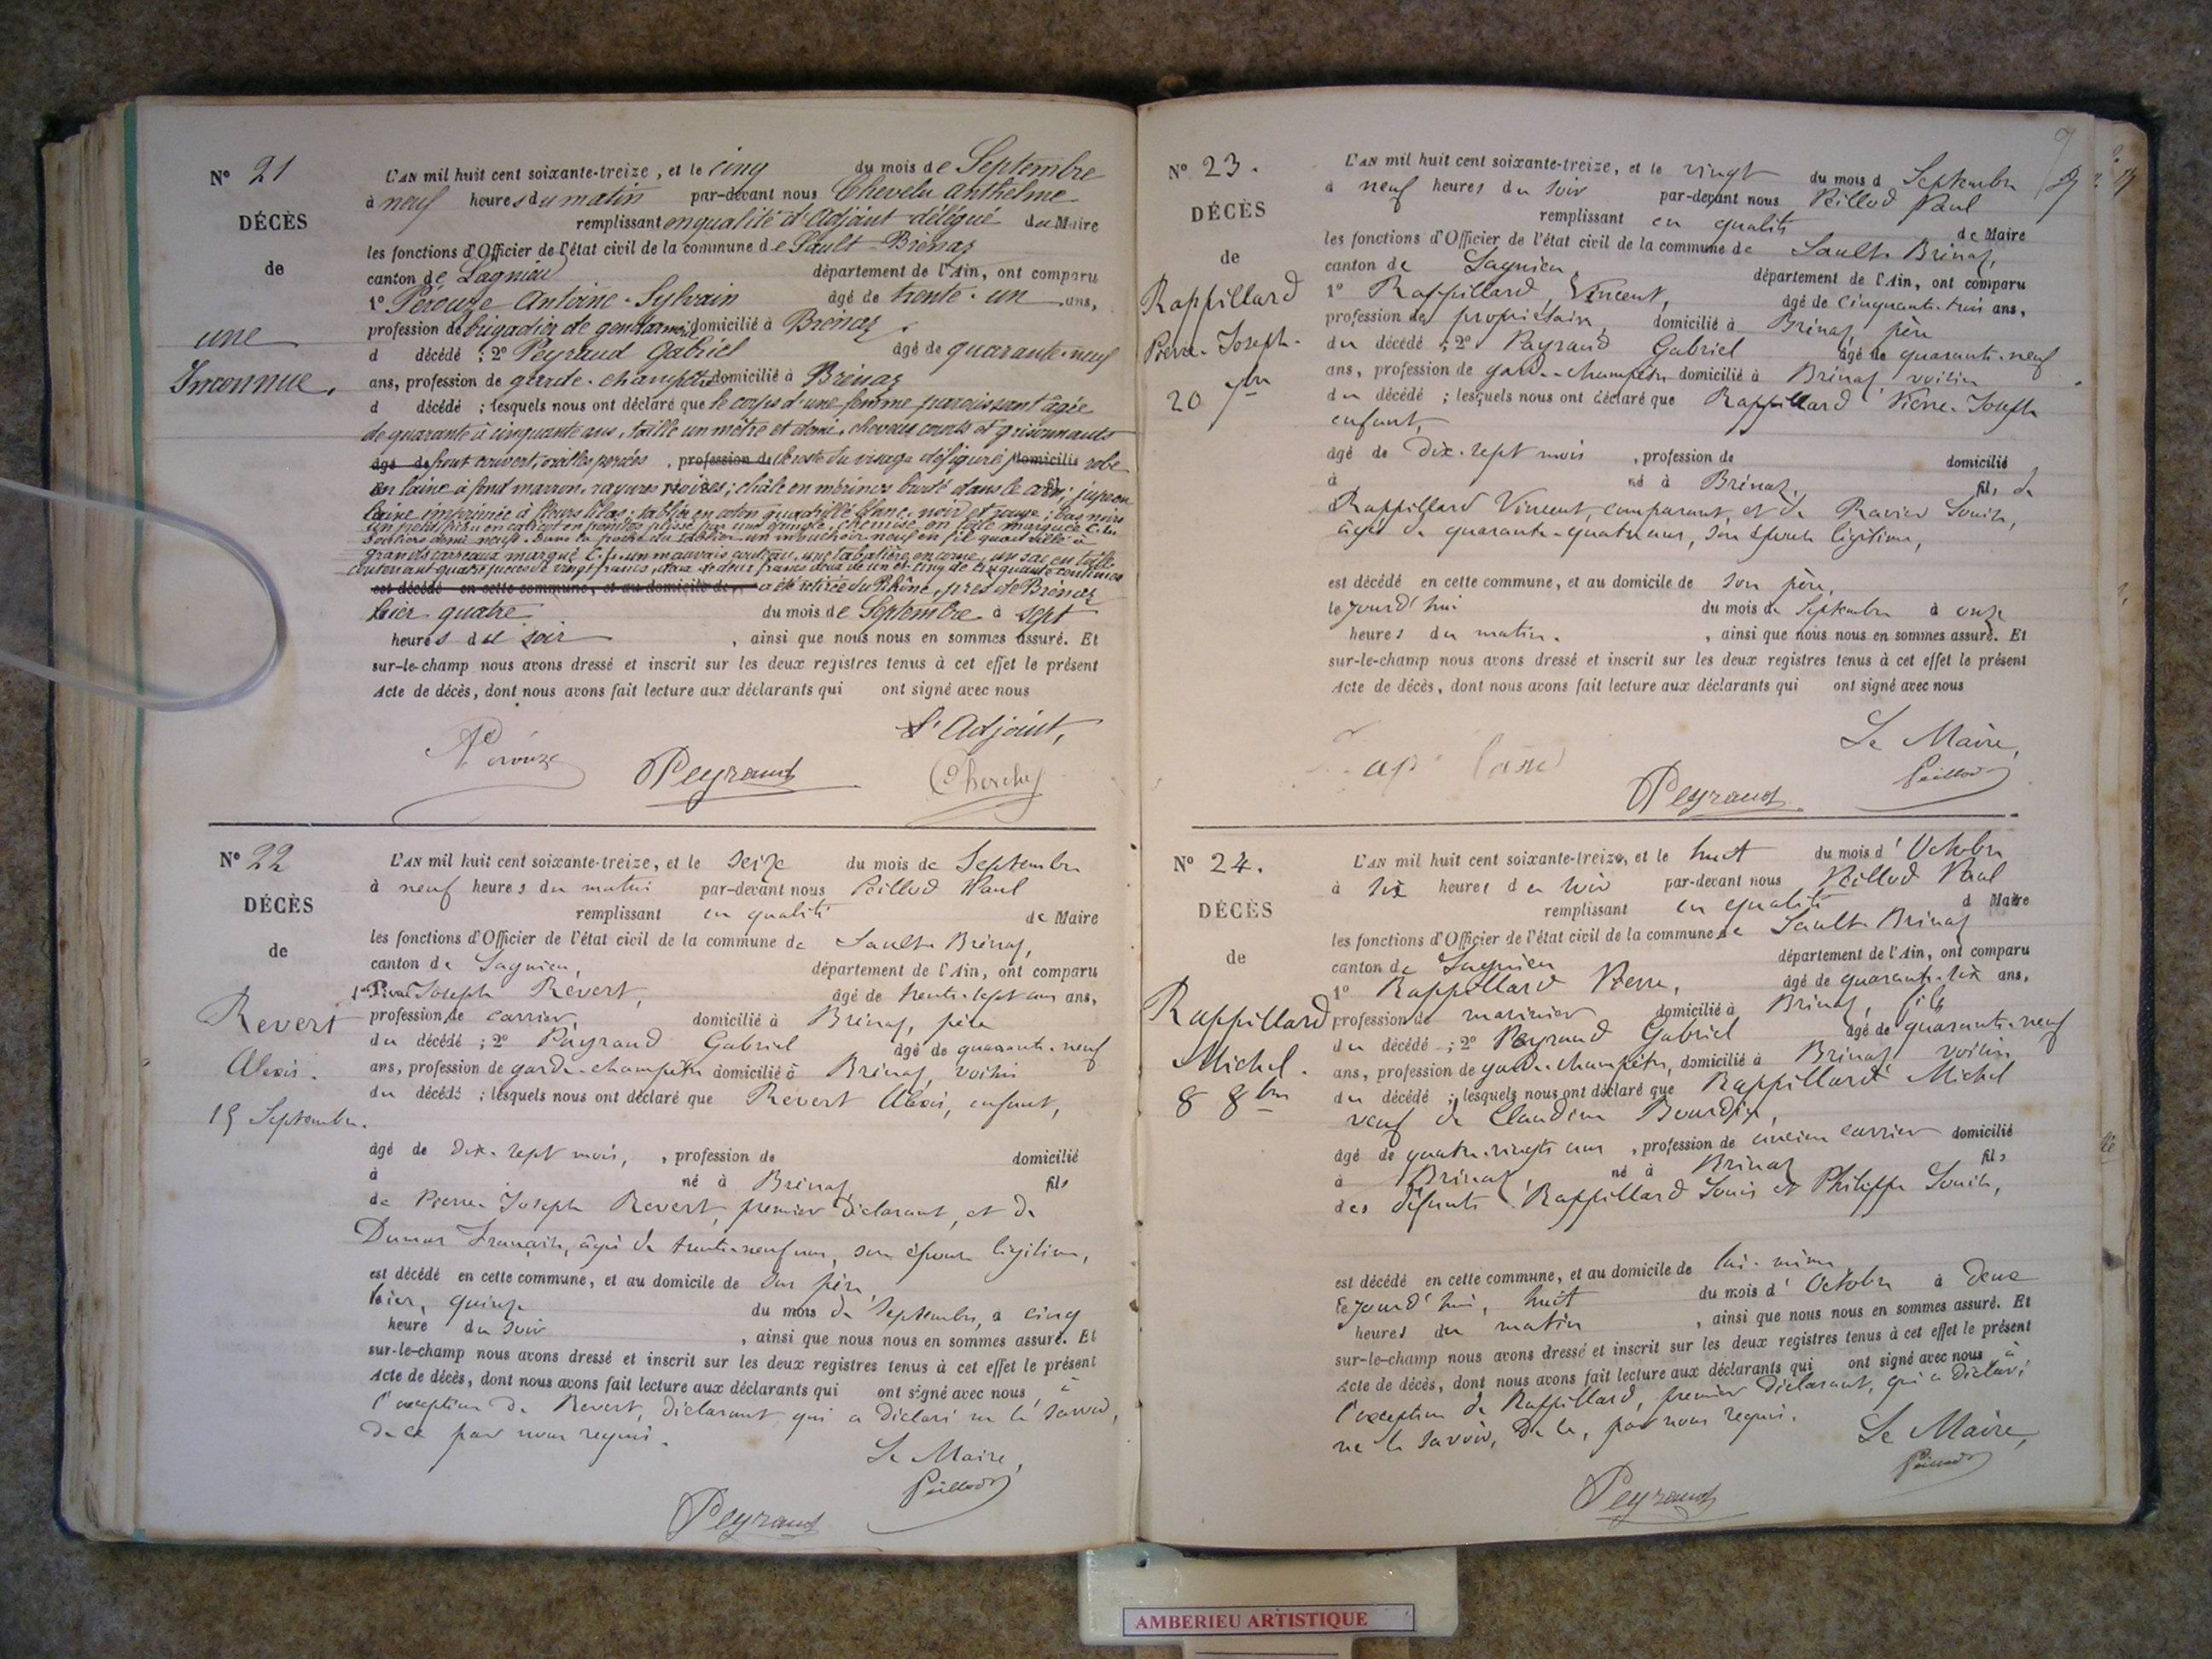 N° 21
DÉCÈS
de
une
Inconnue.
L'AN mil huit cent soixante-treize, et le cinq du mois de Septembre
à neuf heures du matin par-devant nous Chevelu Anthelme
remplissant en qualité d'Adjoint délégué du Maire
les fonctions d'Officier de l'état civil de la commune de Sault-Brénaz
canton de Lagnieu département de l'Ain, ont comparu
1° Pérouze Antoine-Sylvain âgé de trente-un ans,
profession de brigadier de gendarmerie domicilié à Brénaz
d décédé ; 2° Peyraud Gabriel âgé de quarante-neuf
ans, profession de garde-champêtre domicilié à Brénaz
d décédé ; lesquels nous ont déclaré que le corps d'une femme paraissant âgée
de quarante à cinquante ans, taille un mètre et demi, cheveux courts et grisonnants
âgé de front couvert, oreilles percées, profession de le reste du visage défiguré domicilié robe
en laine à fond marron, rayures noires ; châle en mérinos brodé dans le ; jupe en
laine imprimée à fleurs lilas ; tablier en coton quadrillé blanc, noir et rouge ; bas noirs
un petit fichu en calicot en pointe chemise en toile marquée C. L.
souliers demi neufs. Dans la poche du tablier un mouchoir neuf en fil quadrillé à
grands carreaux marqué C. L. un mauvais couteau, une tabatière en corne, un sac en toile
contenant quatre pièces de vingt francs, deux de deux francs deux de un et cinq de cinquante centimes
est décédé en cette commune, et au domicile de a été retirée du Rhône, près de Brénaz
hier quatre du mois de Septembre à sept
heures du soir , ainsi que nous nous en sommes assuré. Et
sur-le-champ nous avons dressé et inscrit sur les deux registres tenus à cet effet le présent
Acte de décès, dont nous avons fait lecture aux déclarants qui ont signé avec nous
L'Adjoint,
Pérouze Peyraud
N° 22
DÉCÈS
de
Revert
Alexis.
15 Septembre.
L'AN mil huit cent soixante-treize, et le seize du mois de Septembre
à neuf heures du matin par-devant nous Peillod Paul
remplissant en qualité de Maire
les fonctions d'Officier de l'état civil de la commune de Sault-Brénaz,
canton de Lagnieu, département de l'Ain, ont comparu
1° Pierre Joseph Revert, âgé de trente-sept ans ans,
profession de carrier, domicilié à Brénaz, père
du décédé ; 2° Peyraud Gabriel âgé de quarante-neuf
ans, profession de garde-champêtre domicilié à Brénaz, voisin
du décédé ; lesquels nous ont déclaré que Revert Alexis, enfant,
âgé de dix-sept mois, , profession de domicilié
à né à Brénaz, fils
de Pierre Joseph Revert, premier déclarant, et de
Dumas Françoise, âgée de trente-neuf ans, son épouse légitime,
est décédé en cette commune, et au domicile de son père,
hier, quinze du mois de Septembre, à cinq
heure du soir , ainsi que nous nous en sommes assuré. Et
sur-le-champ nous avons dressé et inscrit sur les deux registres tenus à cet effet le présent
Acte de décès, dont nous avons fait lecture aux déclarants qui ont signé avec nous, à
l'exception de Revert, déclarant, qui a déclaré ne le savoir,
de ce par nous requis.
Le Maire,
Peillod
Peyraud
N° 23.
DÉCÈS
de
Rappillard
Pierre-Joseph.
20 7bre
L'AN mil huit cent soixante-treize, et le vingt du mois d Septembre
à neuf heures du soir par-devant nous Peillod Paul
remplissant en qualité de Maire
les fonctions d'Officier de l'état civil de la commune de Sault-Brénaz,
canton de Lagnieu, département de l'Ain, ont comparu
1° Rappillard, Vincent, âgé de cinquante-trois ans,
profession de propriétaire, domicilié à Brénaz, père
du décédé ; 2° Peyraud Gabriel âgé de quarante-neuf
ans, profession de garde-champêtre domicilié à Brénaz, voisin
du décédé ; lesquels nous ont déclaré que Rappillard Pierre-Joseph
enfant,
âgé de dix-sept mois , profession de domicilié
à né à Brénaz, fils de
Rappillard Vincent, comparant, et de Ravier Louise,
âgée de quarante-quatre ans, son épouse légitime,
est décédé en cette commune, et au domicile de son père,
cejourd'hui du mois de Septembre à onze
heures du matin. , ainsi que nous nous en sommes assuré. Et
sur-le-champ nous avons dressé et inscrit sur les deux registres tenus à cet effet le présent
Acte de décès, dont nous avons fait lecture aux déclarants qui ont signé avec nous
Le Maire,
Peillod
Peyraud
N° 24.
DÉCÈS
de
Rappillard
Michel.
8 8bre
L'AN mil huit cent soixante-treize, et le huit du mois d'Octobre
à six heures du soir par-devant nous Peillod Paul
remplissant en qualité d Maire
les fonctions d'Officier de l'état civil de la commune de Sault-Brénaz
canton de Lagnieu département de l'Ain, ont comparu
1° Rappillard Pierre, âgé de quarante-six ans,
profession de marinier domicilié à Brénaz, fils
du décédé ; 2° Peyraud Gabriel âgé de quarante-neuf
ans, profession de garde-champêtre, domicilié à Brénaz voisin
du décédé ; lesquels nous ont déclaré que Rappillard Michel
veuf de Claudine Bourdin,
âgé de quatre-vingts ans , profession de ancien carrier domicilié
à Brénaz, né à Brénaz fils
des défunts Rappillard Louis et Philippe Louise,
est décédé en cette commune, et au domicile de lui-même
cejourd'hui, huit du mois d'Octobre à deux
heures du matin , ainsi que nous nous en sommes assuré. Et
sur-le-champ nous avons dressé et inscrit sur les deux registres tenus à cet effet le présent
Acte de décès, dont nous avons fait lecture aux déclarants qui ont signé avec nous à
l'exception de Rappillard, premier déclarant, qui a déclaré
ne le savoir, de ce, par nous requis.
Le Maire,
Peillod
Peyraud
AMBERIEU ARTISTIQUE